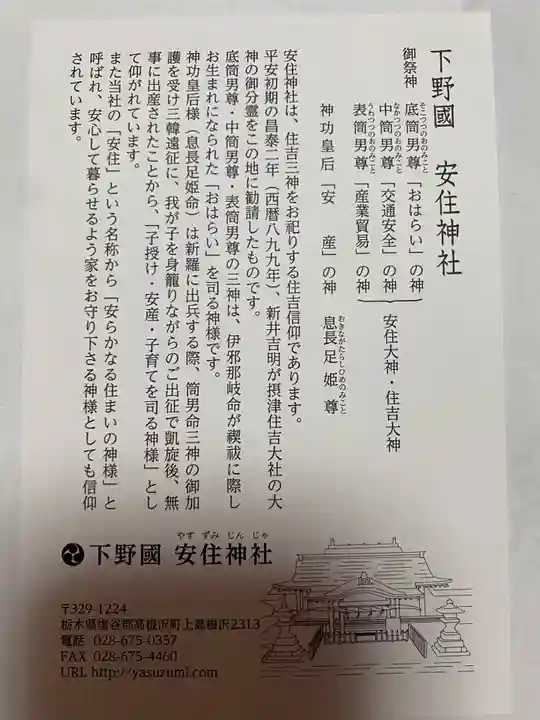 下野國 安住神社
御祭神
底筒男尊「おはらい」の神
そこつつのおのみこと
中筒男尊「交通安全」の神
なかつつのおのみこと
表筒男尊「産業貿易」の神
うわつつのおのみこと
安住大神・住吉大神
神功皇后「安 産」の神 息長足姫尊
おきながたらしひめのみこと
安住神社は、住吉三神をお祀りする住吉信仰であります。
平安初期の昌泰二年（西暦八九九年）、新井吉明が摂津住吉大社の大
神の御分霊をこの地に勧請したものです。
底筒男尊・中筒男尊・表筒男尊の三神は、伊邪那岐命が禊祓に際し
お生まれになられた「おはらい」を司る神様です。
神功皇后様（息長足姫命）は新羅に出兵する際、筒男命三神の御加
護を受け三韓遠征に、我が子を身籠りながらのご出征で凱旋後、無
事に出産されたことから、「子授け・安産・子育てを司る神様」とし
て仰がれています。
また当社の「安住」という名称から「安らかなる住まいの神様」と
呼ばれ、安心して暮らせるよう家をお守り下さる神様としても信仰
されています。
やす ずみ じん じゃ
下野國 安住神社
〒329-1224
栃木県塩谷郡高根沢町上高根沢2313
電話 028-675-0357
FAX 028-675-4460
URL http://yasuzumi.com/